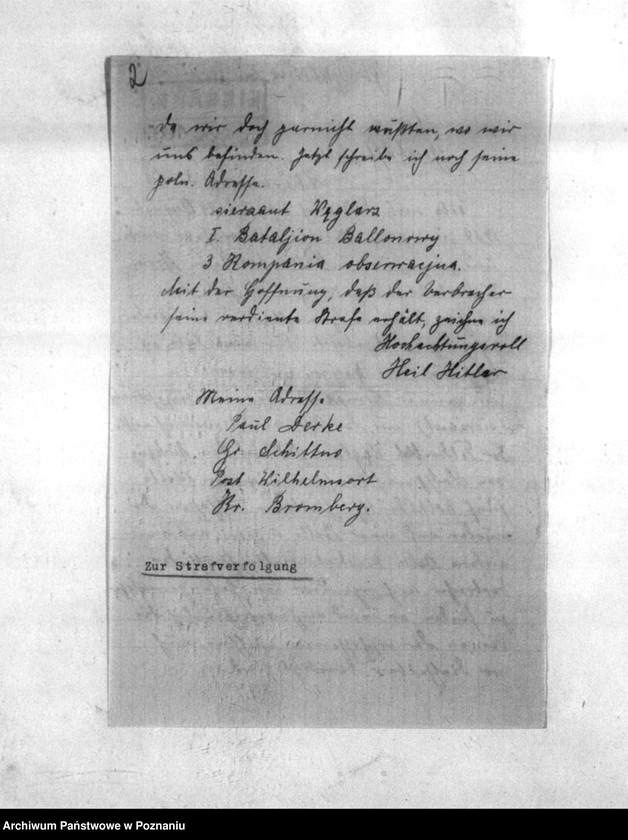 2
da wir doch garnicht wußten, wo wir
uns befinden. Jetzt schreibe ich noch seine
poln. Adresse.
sierzant Węglarz
I. Bataljion Ballonowy
3 Kompania obserwacjna.
Mit der Hoffnung, daß der Verbrecher
seine verdiente Strafe erhält, zeichne ich
Hochachtungsvoll
Heil Hitler
Meine Adresse
Paul Derke
Gr. Schittno
Post Wilhelmsort
Kr. Bromberg.
Zur Strafverfolgung
Archiwum Państwowe w Poznaniu